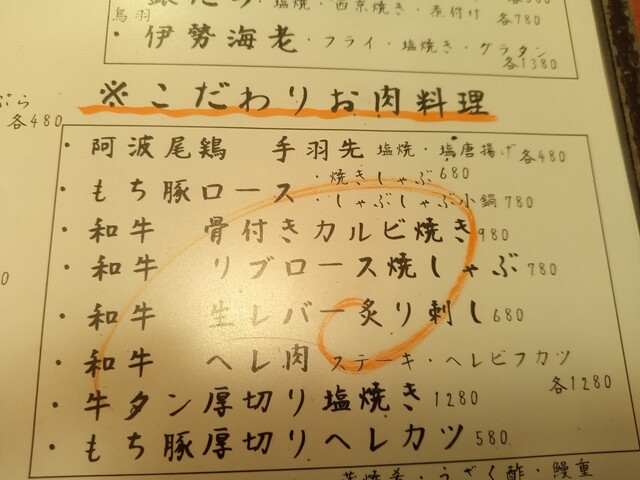 塩焼・西京焼き・煮付け
鳥羽 各780
・伊勢海老・フライ・塩焼き・グラタン
各1380
ぷら
各480
※こだわりお肉料理
・阿波尾鶏 手羽先 塩焼・塩唐揚げ 各480
・もち豚ロース ・焼きしゃぶ 680
・しゃぶしゃぶ小鍋 780
・和牛 骨付きカルビ焼き 980
・和牛 リブロース焼しゃぶ 780
・和牛 生レバー炙り刺し 680
・和牛 ヘレ肉 ステーキ・ヘレビフカツ
各1280
・牛タン厚切り塩焼き 1280
・もち豚厚切りヘレカツ 580
うざく酢・鰻重